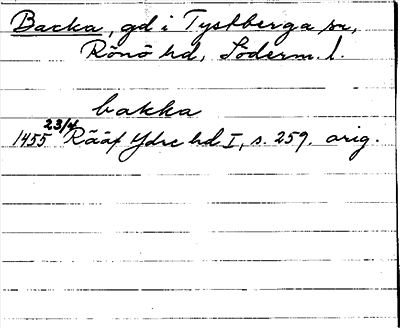 Backa, gd i Tystberga sn,
Rönö hd, Söderm. l.
bakka
1455 23/4 Rääf Ydre hd I, s. 259. orig.